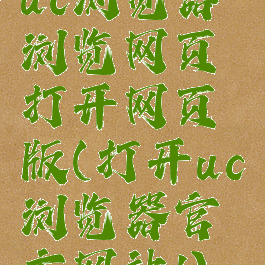 uc浏览器
浏览网页
打开网页
版(打开uc
浏览器官
方网站)